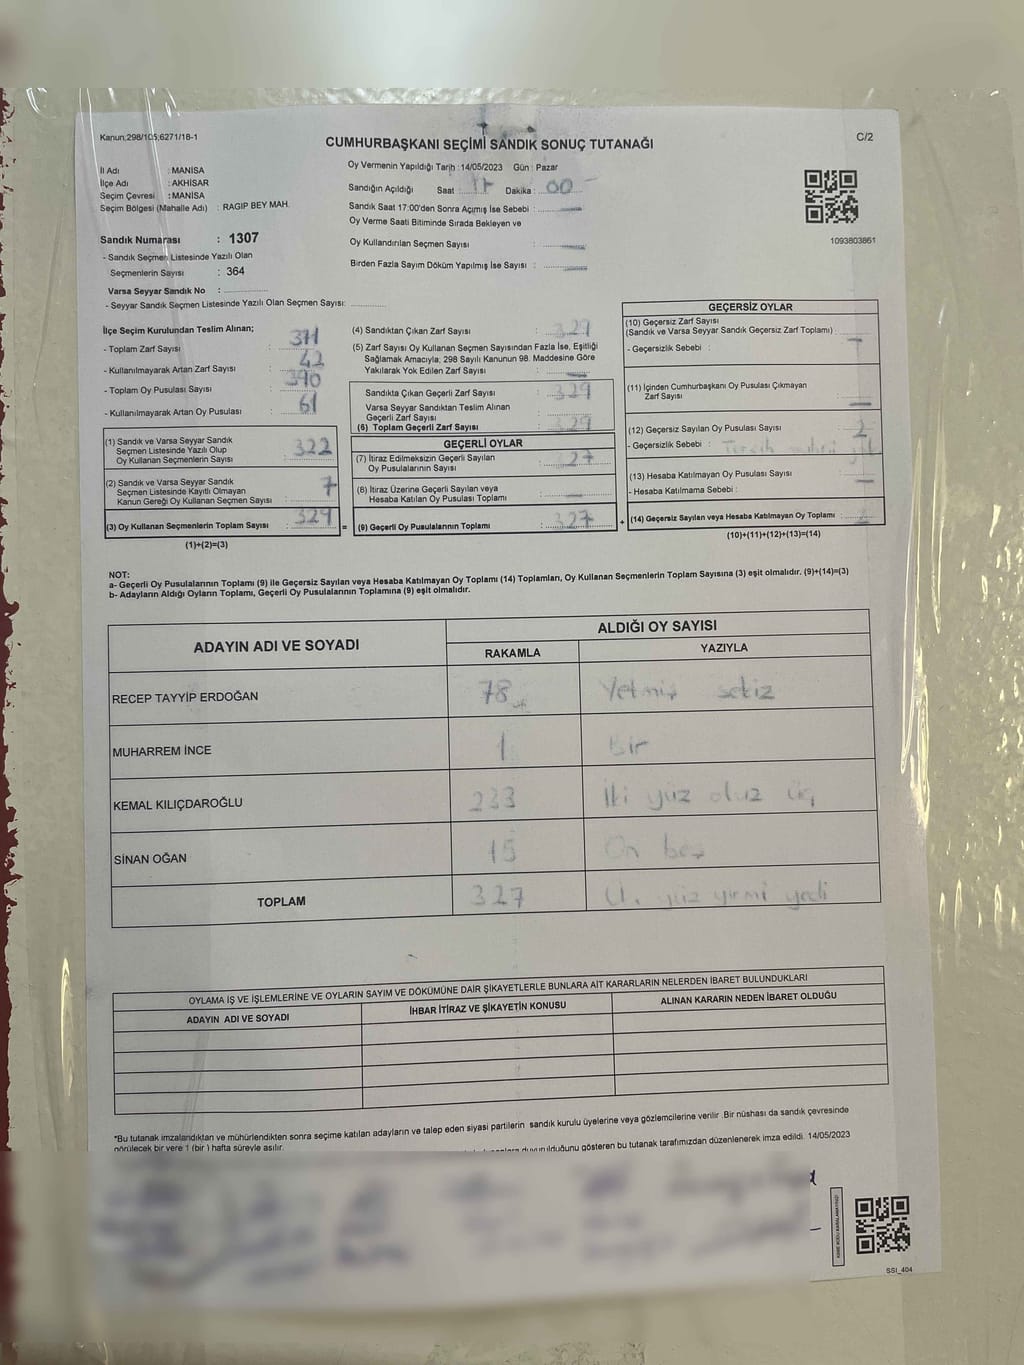 Kanun:298/105;6271/18-1
CUMHURBAŞKANI SEÇİMİ SANDIK SONUÇ TUTANAĞI
C/2
İl Adı : MANİSA
İlçe Adı : AKHİSAR
Seçim Çevresi : MANİSA
Seçim Bölgesi (Mahalle Adı) : RAGIP BEY MAH.
Sandık Numarası : 1307
- Sandık Seçmen Listesinde Yazılı Olan
Seçmenlerin Sayısı : 364
Varsa Seyyar Sandık No :
- Seyyar Sandık Seçmen Listesinde Yazılı Olan Seçmen Sayısı:
Oy Vermenin Yapıldığı Tarih :14/05/2023 Gün : Pazar
Sandığın Açıldığı Saat : 17 Dakika : 00
Sandık Saat 17:00'den Sonra Açımış İse Sebebi :
Oy Verme Saati Bitiminde Sırada Bekleyen ve
Oy Kullandırılan Seçmen Sayısı :
Birden Fazla Sayım Döküm Yapılmış İse Sayısı :
1093803861
İlçe Seçim Kurulundan Teslim Alınan;
- Toplam Zarf Sayısı : 371
- Kullanılmayarak Artan Zarf Sayısı : 42
- Toplam Oy Pusulası Sayısı : 390
- Kullanılmayarak Artan Oy Pusulası : 61
(1) Sandık ve Varsa Seyyar Sandık
Seçmen Listesinde Yazılı Olup
Oy Kullanan Seçmenlerin Sayısı : 322
(2) Sandık ve Varsa Seyyar Sandık
Seçmen Listesinde Kayıtlı Olmayan
Kanun Gereği Oy Kullanan Seçmen Sayısı : 7
(3) Oy Kullanan Seçmenlerin Toplam Sayısı : 329
(1)+(2)=(3)
(4) Sandıktan Çıkan Zarf Sayısı : 329
(5) Zarf Sayısı Oy Kullanan Seçmen Sayısından Fazla İse, Eşitliği
Sağlamak Amacıyla; 298 Sayılı Kanunun 98. Maddesine Göre
Yakılarak Yok Edilen Zarf Sayısı :
Sandıkta Çıkan Geçerli Zarf Sayısı : 329
Varsa Seyyar Sandıktan Teslim Alınan
Geçerli Zarf Sayısı
(6) Toplam Geçerli Zarf Sayısı : 329
GEÇERLİ OYLAR
(7) İtiraz Edilmeksizin Geçerli Sayılan
Oy Pusulalarının Sayısı : 327
(8) İtiraz Üzerine Geçerli Sayılan veya
Hesaba Katılan Oy Pusulası Toplamı :
= (9) Geçerli Oy Pusulalarının Toplamı : 327
GEÇERSİZ OYLAR
(10) Geçersiz Zarf Sayısı
(Sandık ve Varsa Seyyar Sandık Geçersiz Zarf Toplamı) :
- Geçersizlik Sebebi :
(11) İçinden Cumhurbaşkanı Oy Pusulası Çıkmayan
Zarf Sayısı :
(12) Geçersiz Sayılan Oy Pusulası Sayısı : 2
- Geçersizlik Sebebi : Tercih mührü
(13) Hesaba Katılmayan Oy Pusulası Sayısı :
- Hesaba Katılmama Sebebi :
+ (14) Geçersiz Sayılan veya Hesaba Katılmayan Oy Toplamı : 2
(10)+(11)+(12)+(13)=(14)
NOT:
a- Geçerli Oy Pusulalarının Toplamı (9) ile Geçersiz Sayılan veya Hesaba Katılmayan Oy Toplamı (14) Toplamları, Oy Kullanan Seçmenlerin Toplam Sayısına (3) eşit olmalıdır. (9)+(14)=(3)
b- Adayların Aldığı Oyların Toplamı, Geçerli Oy Pusulalarının Toplamına (9) eşit olmalıdır.
ADAYIN ADI VE SOYADI
ALDIĞI OY SAYISI
RAKAMLA YAZIYLA
RECEP TAYYİP ERDOĞAN 78 Yetmiş sekiz
MUHARREM İNCE 1 Bir
KEMAL KILIÇDAROĞLU 233 İki yüz otuz üç
SİNAN OĞAN 15 On beş
TOPLAM 327 Üç yüz yirmi yedi
OYLAMA İŞ VE İŞLEMLERİNE VE OYLARIN SAYIM VE DÖKÜMÜNE DAİR ŞİKAYETLERLE BUNLARA AİT KARARLARIN NELERDEN İBARET BULUNDUKLARI
ADAYIN ADI VE SOYADI İHBAR İTİRAZ VE ŞİKAYETİN KONUSU ALINAN KARARIN NEDEN İBARET OLDUĞU
*Bu tutanak imzalandıktan ve mühürlendikten sonra seçime katılan adayların ve talep eden siyasi partilerin sandık kurulu üyelerine veya gözlemcilerine verilir .Bir nüshası da sandık çevresinde
görülecek bir yere 1 (bir ) hafta süreyle asılır.
duyurulduğunu gösteren bu tutanak tarafımızdan düzenlenerek imza edildi. 14/05/2023
KARE KODU KARALAMAYINIZ!
SSI_404